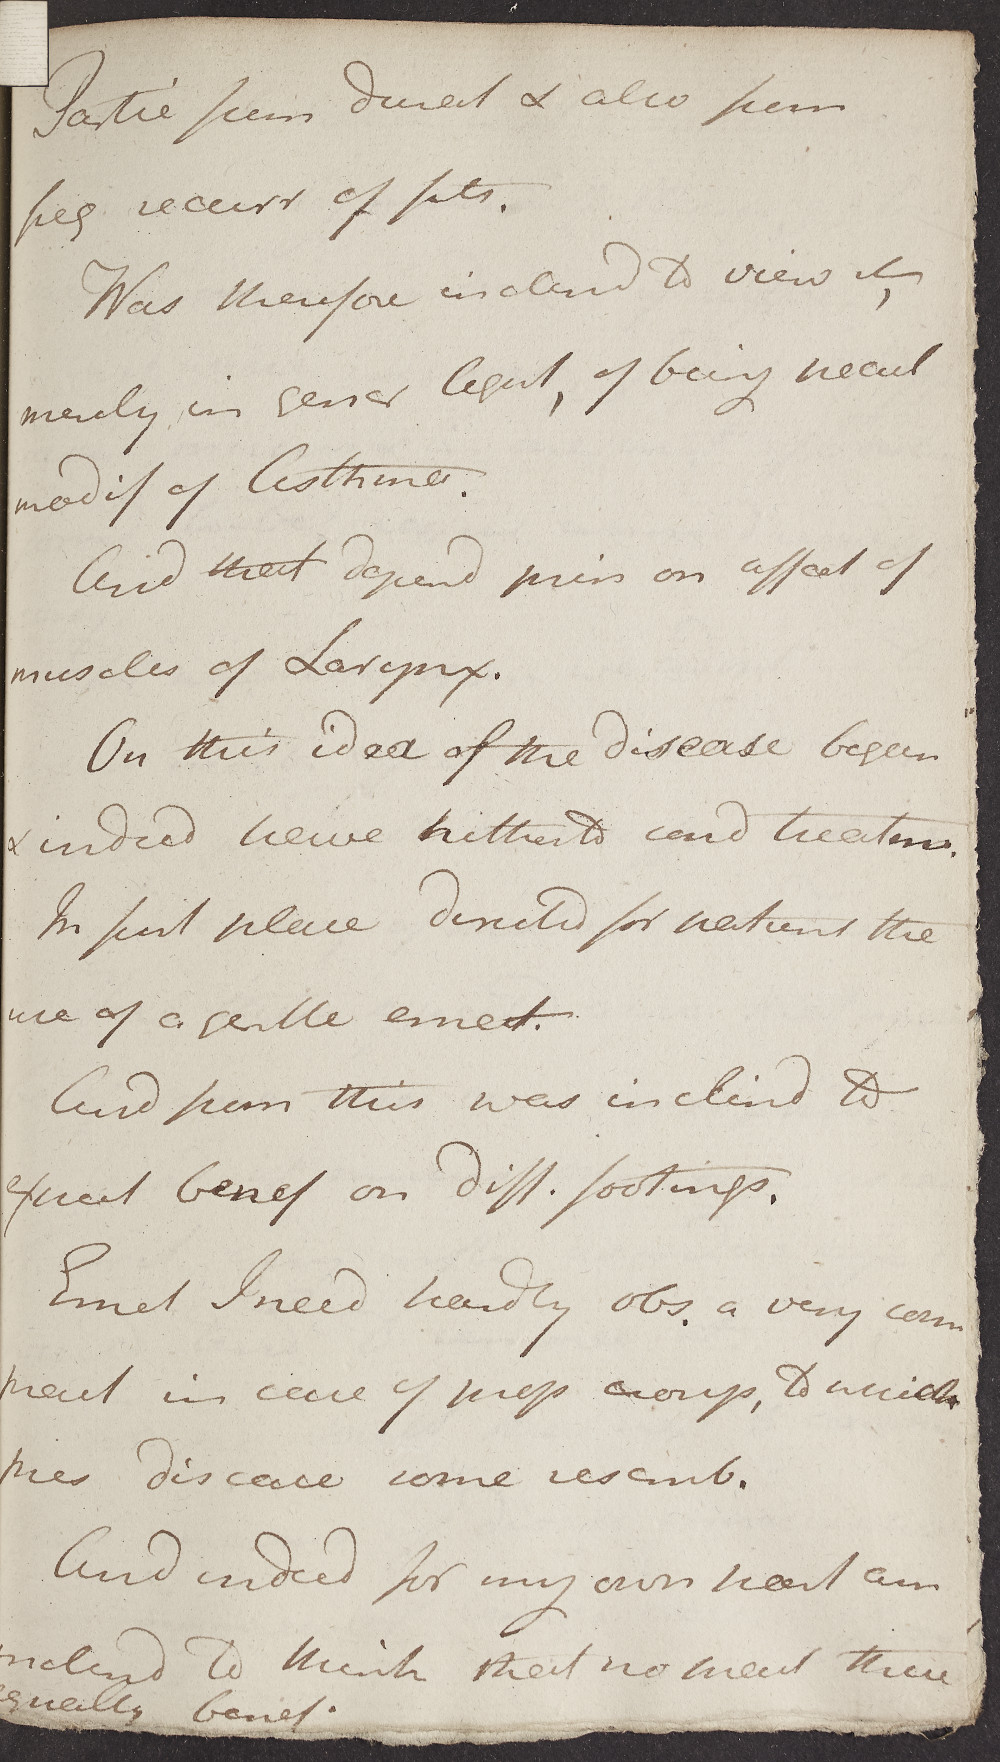 Partic from durat & also from
freq recurr of fits.
Was therefore inclend to view it,
merely in gener light, of being pecul
modif of Asthma.
And that depend prin on affect of
muscles of Larynx.
On this idea of the disease began
& indeed have hitherto cond treatm.
In first place directed for patient the
use of a gentle emet.
And from this was inclind to
expect benef on diff. footings.
Emet I need hardly obs. a very com
pract in case of prop croup, to which
pres disease some resemb.
And indeed for my own part am
inclend to think that no pract there
equally benef.